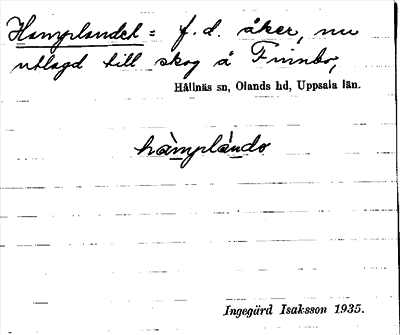 Hamplandet = f.d. åker, nu
utlagd till skog å Finnbo,
Hållnäs sn, Olands hd, Uppsala län.
hàmplándo
Ingegärd Isaksson 1935.